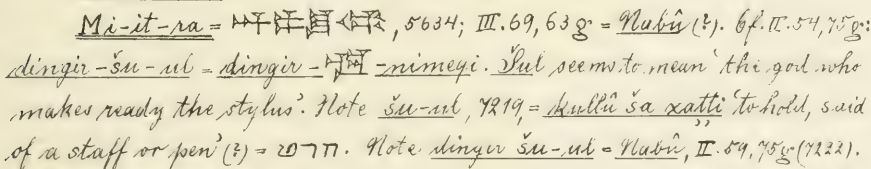 Mi-it-ra = , 5634; III. 69, 63 g = Nabû (?). Cf. II. 54, 75 g:
dingir-šu-ul = dingir- -nimeqi. Šul seems to mean 'the god who
makes ready the stylus'. Note šu-ul, 7219, = kullû ša xatti 'to hold, said
of a staff or pen' (?) = . Note dingir šu-ul = Nabû, II. 59, 75 g (7222).